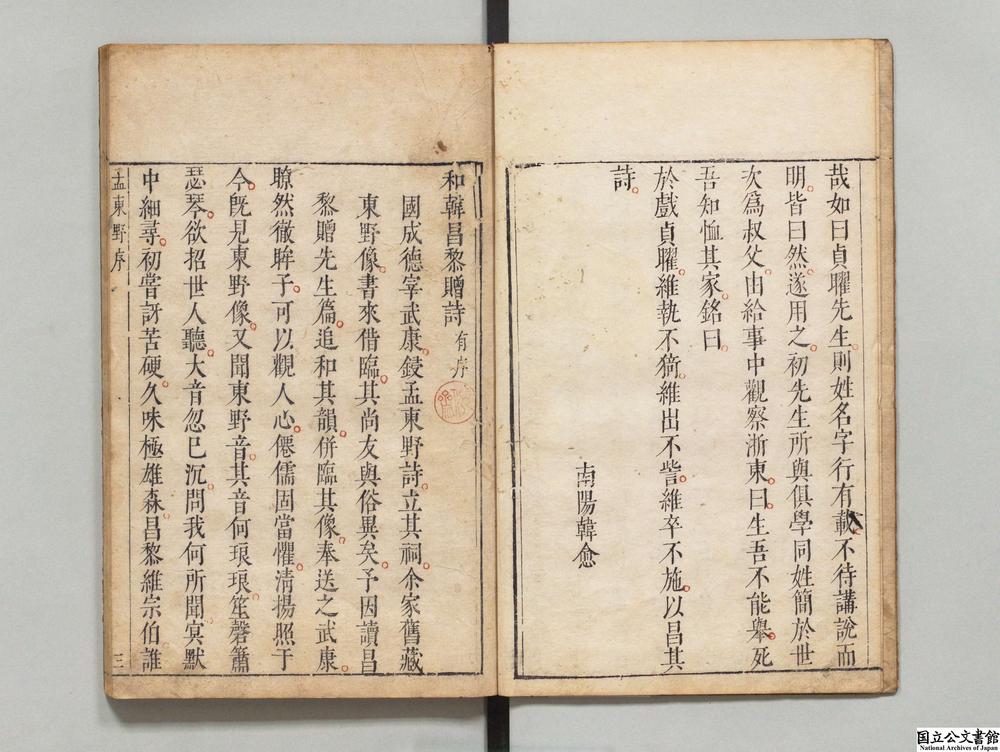 哉如曰貞曜先生則姓名字行有載不待講說而
明皆曰然遂用之初先生所與俱學同姓簡於世
次爲叔父由給事中觀察浙東曰生吾不能舉死
吾知恤其家銘曰
於戲貞曜維執不猗維出不訾維卒不施以昌其
詩
南陽韓愈
和韓昌黎贈詩有序
國成德宰武康鋟孟東野詩立其祠余家舊藏
東野像書來借臨其尚友與俗異矣予因讀昌
黎贈先生篇追和其韻併臨其像奉送之武康
瞭然徹眸子可以觀人心僊儒固當懼清揚照于
今旣見東野像又聞東野音其音何琅琅笙磬簫
瑟琴欲招世人聽大音忽已沉問我何所聞冥默
中細尋初嘗訝苦硬久味極雄森昌黎維宗伯誰
孟東野序
三
国立公文書館
National Archives of Japan